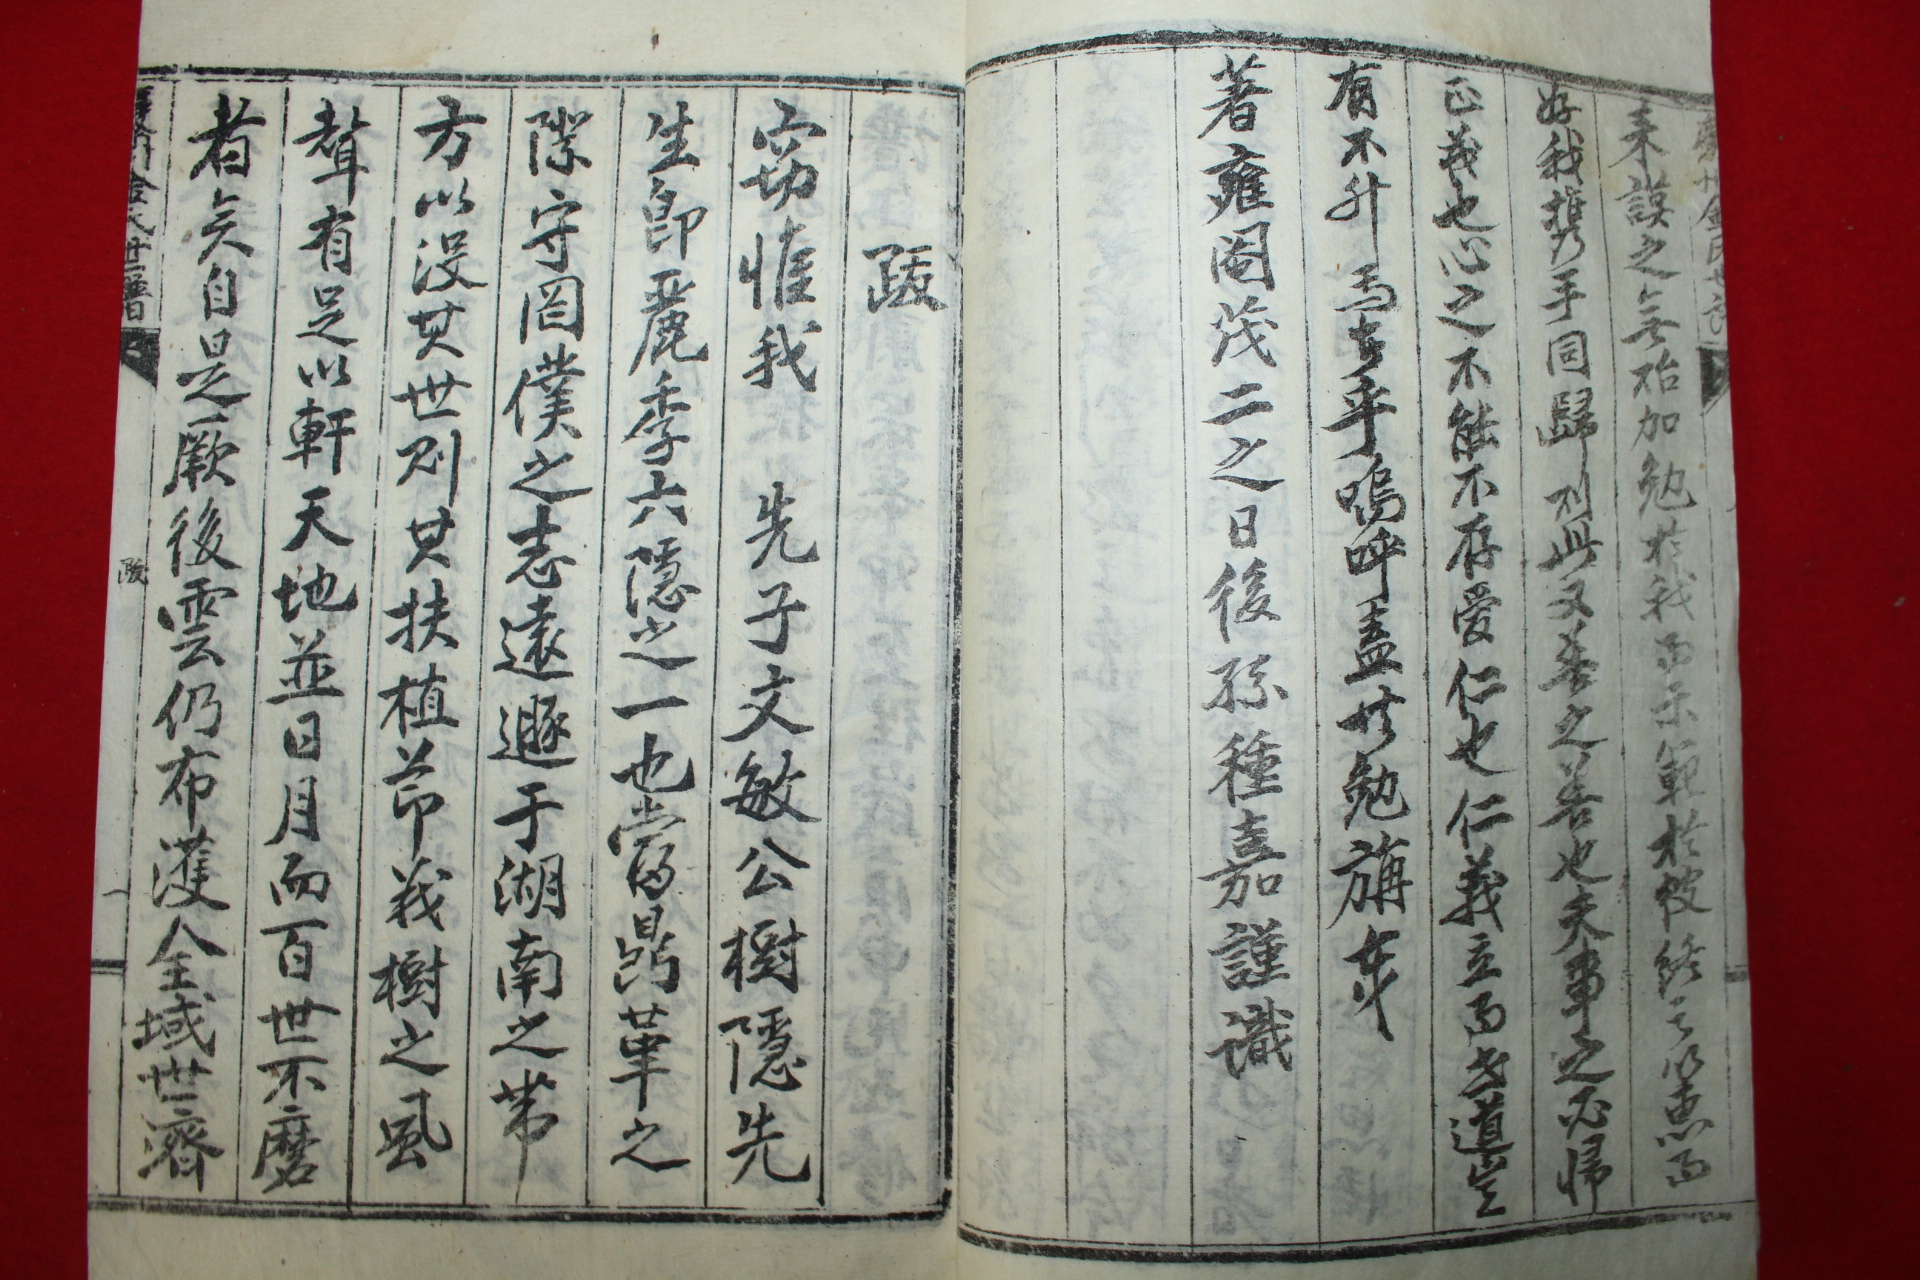 來謨之無殆加勉於我而示範於彼終之以惠而
好我携手同歸則此又善之善也夫事之必歸
正義也心之不能不存愛仁也仁義立而世道豈
有不升焉者乎嗚呼盖共勉旃哉
著雍閹茂二之日後孫種嘉謹識
跋
窃惟我 先子文敏公樹隱先
生卽麗季六隱之一也當鼎革之
際守罔僕之志遠遯于湖南之帶
方以沒其世則其扶植節義樹之風
聲有足以軒天地並日月而百世不磨
者矣自是厥後雲仍布濩全域世濟
金氏世譜
跋
一